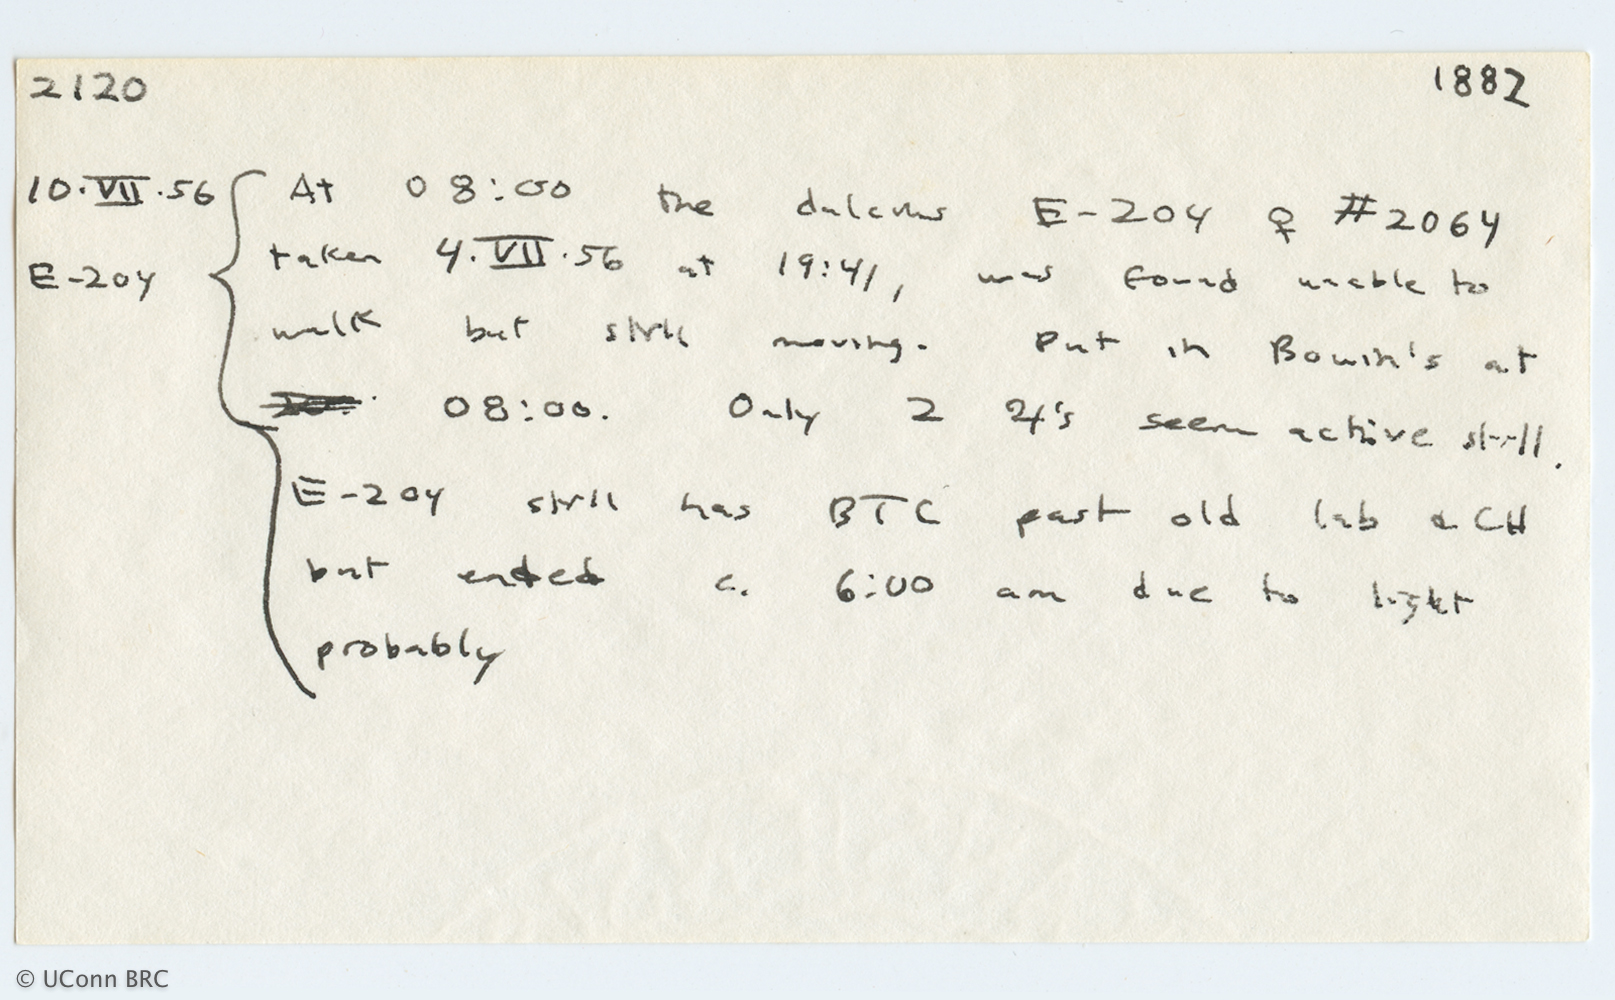 2120 1882
10.VII.56 At 08:00 the dulcius E-204 ♀ #2064
E-204 taken 4.VII.56 at 19:41, was found unable to
walk but still moving. Put in Bouin's at
08:00. Only 2 ♃'s seem active still.
E-204 still has BTC past old lab & CH
but ended c. 6:00 am due to light
probably
© UConn BRC